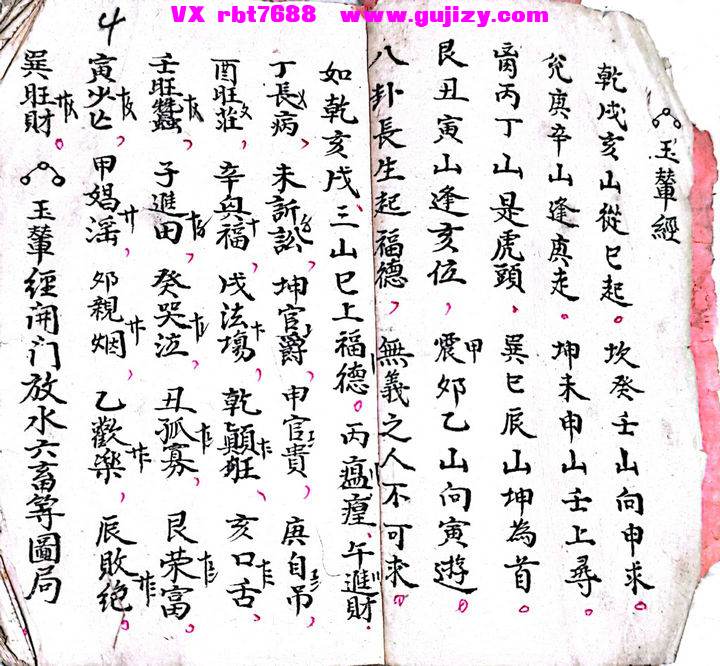 VX rbt7688 www.gujizy.com
玉輦經
乾戌亥山從巳起。坎癸壬山向申求。
兌庚辛山逢寅走。坤未申山壬上尋。
丙丁山是虎頭、巽巳辰山坤為首。
艮丑寅山逢亥位、震卯乙山向寅遊。甲
八卦長生起福德、無義之人不可求。
如乾亥戌三山巳上福德。丙瘟瘽、午進財、
丁長病、未訴訟、坤官爵、申官貴、庚自吊、
酉旺莊、辛興福、戌法塲、乾顛狂、亥口舌、
壬旺蠶、子進田、癸哭泣、丑孤寡、艮荣富、
寅少亡、甲娼滛、卯親烟、乙歡樂、辰敗絕、
巽旺財。玉輦經開门放水六畜等圖局
4